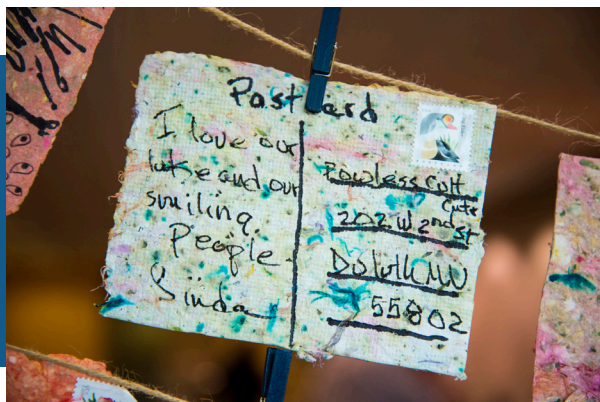 Postcard
I love our
lake and our
smiling
People
Linda
Powless Cult
Cntr
202 W 2nd St
Duluth MN
55802